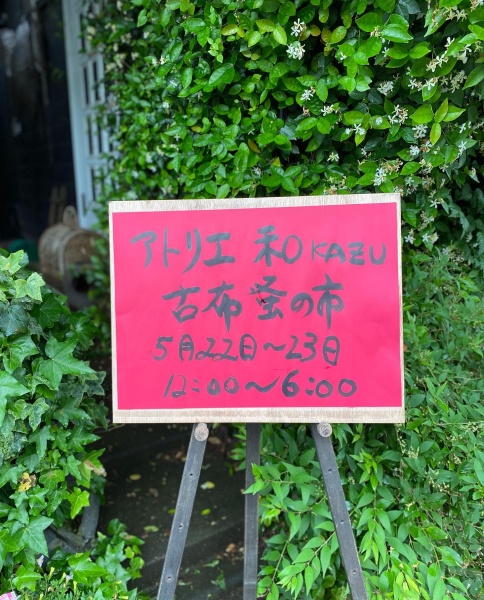 アトリエ 和 OKAZU
古布 蚤の市
5月22日〜23日
12:00〜6:00